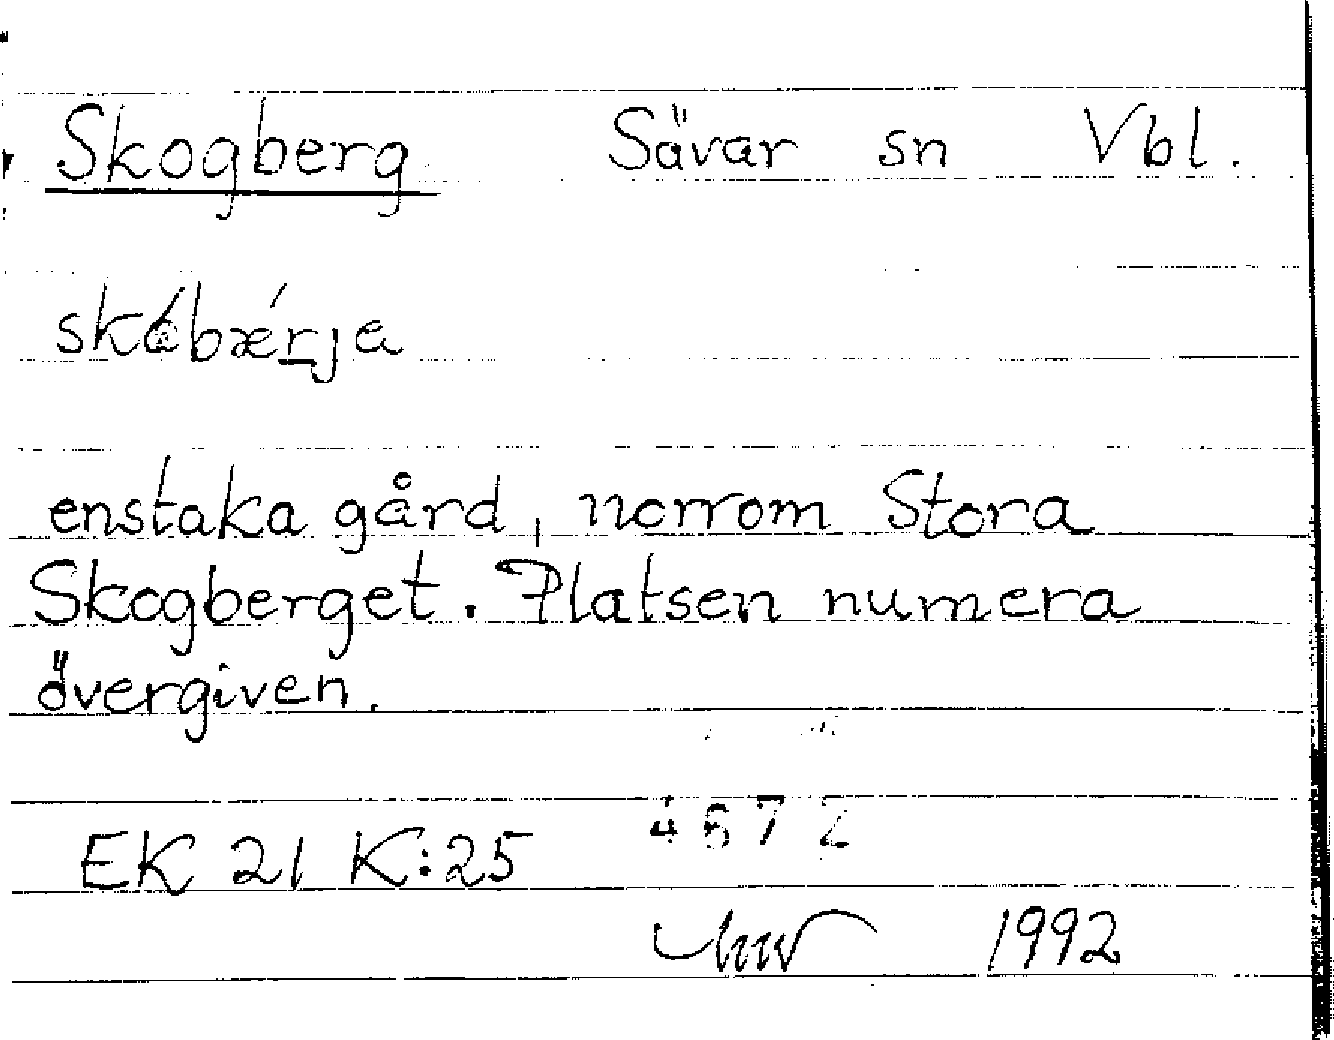 Skogberg Sävar sn Vbl.
skábǽrja
enstaka gård, norrom Stora
Skogberget. Platsen numera
övergiven.
4672
EK 21 K:25
1992